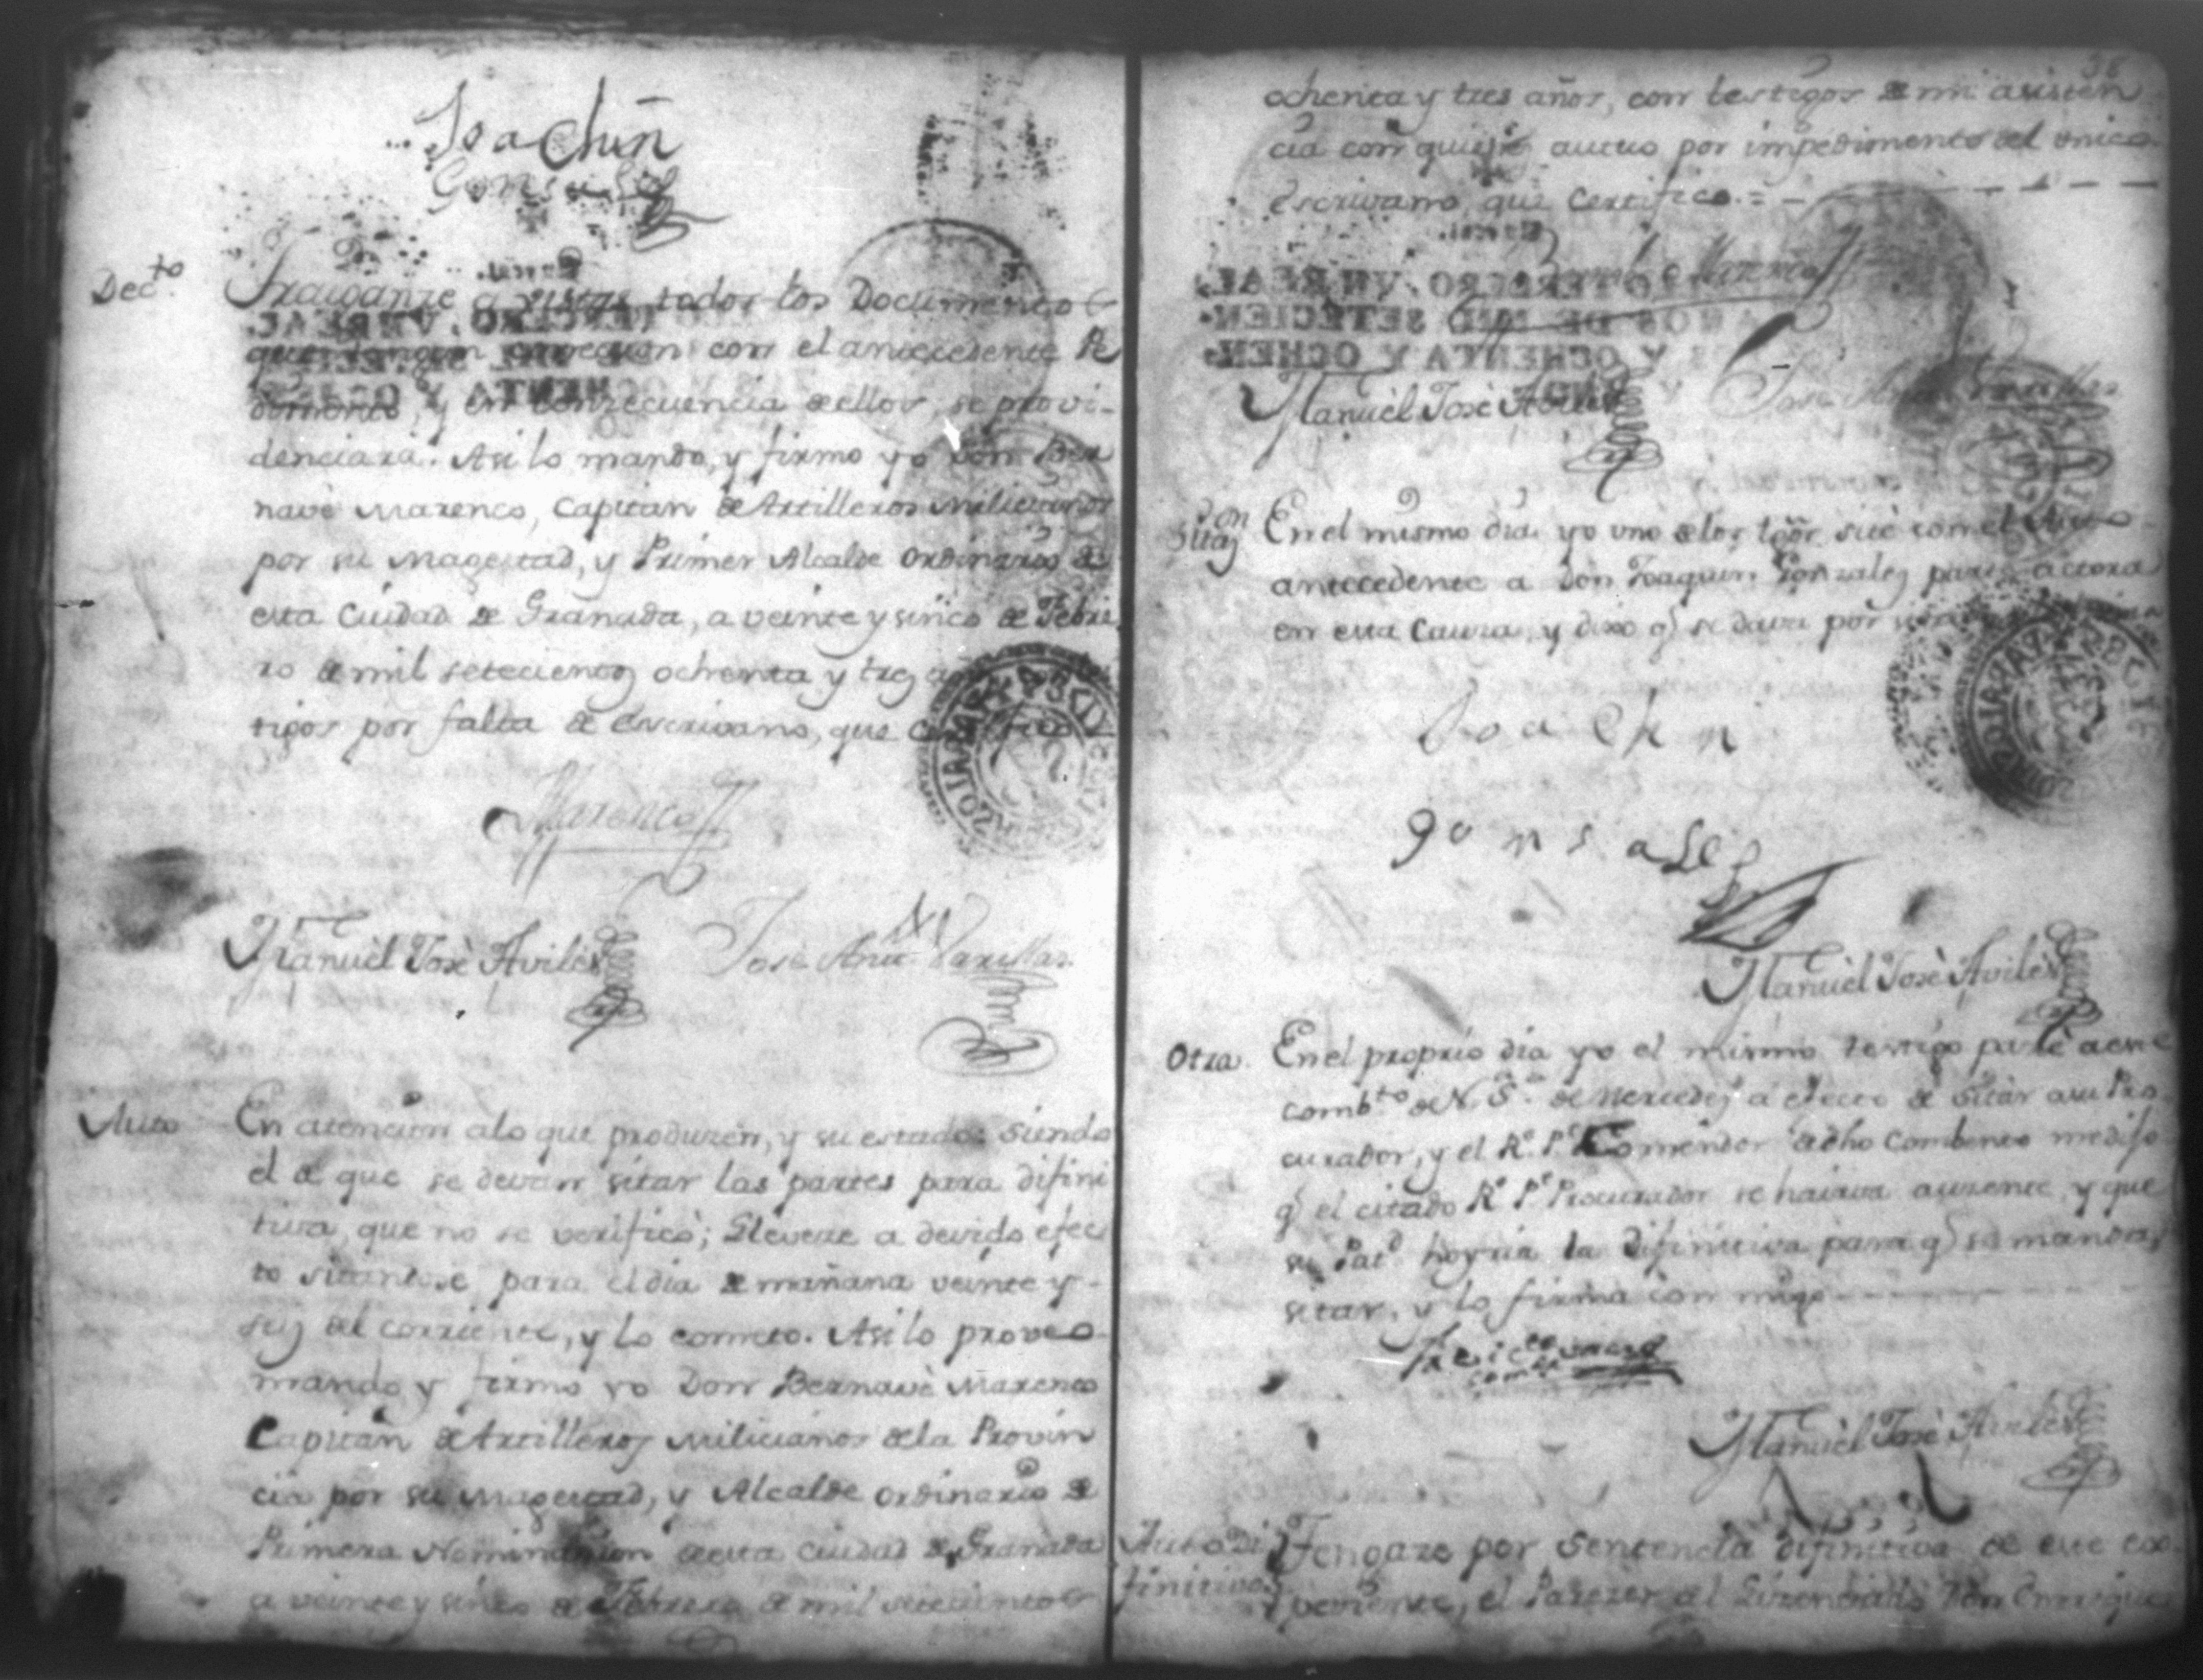 Joachin
Gonsales
Dec.to
Traiganse a vistas todos los Documentos
que tengan con el antecedente Pe
dimento, y en consecuencia de ellos, se provi-
denciará. Asi lo mando, y firmo yo Don Ber
navè Marenco, Capitan de Artilleros Milicianos
por su Magestad, y Primer Alcalde Ordinario de
esta Ciudad de Granada, a veinte y sinco de Febre
ro de mil setecientos ochenta y tres
tigos por falta de Escrivano, que Certifico
Marenco
Manuèl Josè Avilès Jose Anto Varillas
Auto
En atencion a lo que producen, y su estado siendo
el de que se devian sitar las partes para difini
tiva, que no se verificò; Llevese a devido efec
to sitandose para el dia de mañana veinte y-
seis del corriente, y lo cometo. Asi lo proveo
mando y firmo yo Don Bernavè Marenco
Capitan de Artilleros Milicianos de la Provin
cia por su Magestad, y Alcalde Ordinario de
Primera Nominacion de esta Ciudad de Granada
a veinte y sinco de Febrero de mil setecientos
38
ochenta y tres años, con testigos de mi asisten
cia con quienes autuo por impedimento del unico
escrivano, que Certifico.=
Marenco
Manuèl Josè Avilès Jose Anto Varillas
Sitaz.on
En el mismo dia yo uno de los tgos. sitè con el Auto
antecedente a Don Joaquin Gonzales parte actora
en esta Causa, y dixo q.e se dava por
Joachin
gonsales
Manuèl Josè Avilès
Otra.
En el proprio dia yo el mismo testigo pasè a este
Comb.to de N. S.a de Mercedes a efecto de Sitar a su Pro
curador, y el R.e P.e Comendor de dho Combento me dijo
q.e el citado R.e P.e Procurador se hallava ausente, y que
su Pat.d hoyria la difinitiva para q.e se mandava
sitar, y lo firma con migo
Manuèl Josè Avilès
Auto Di
finitivo
Tengase por Sentencia difinitiva de este ex-
pediente, el Parezer del Lizenciado Don Enrrique